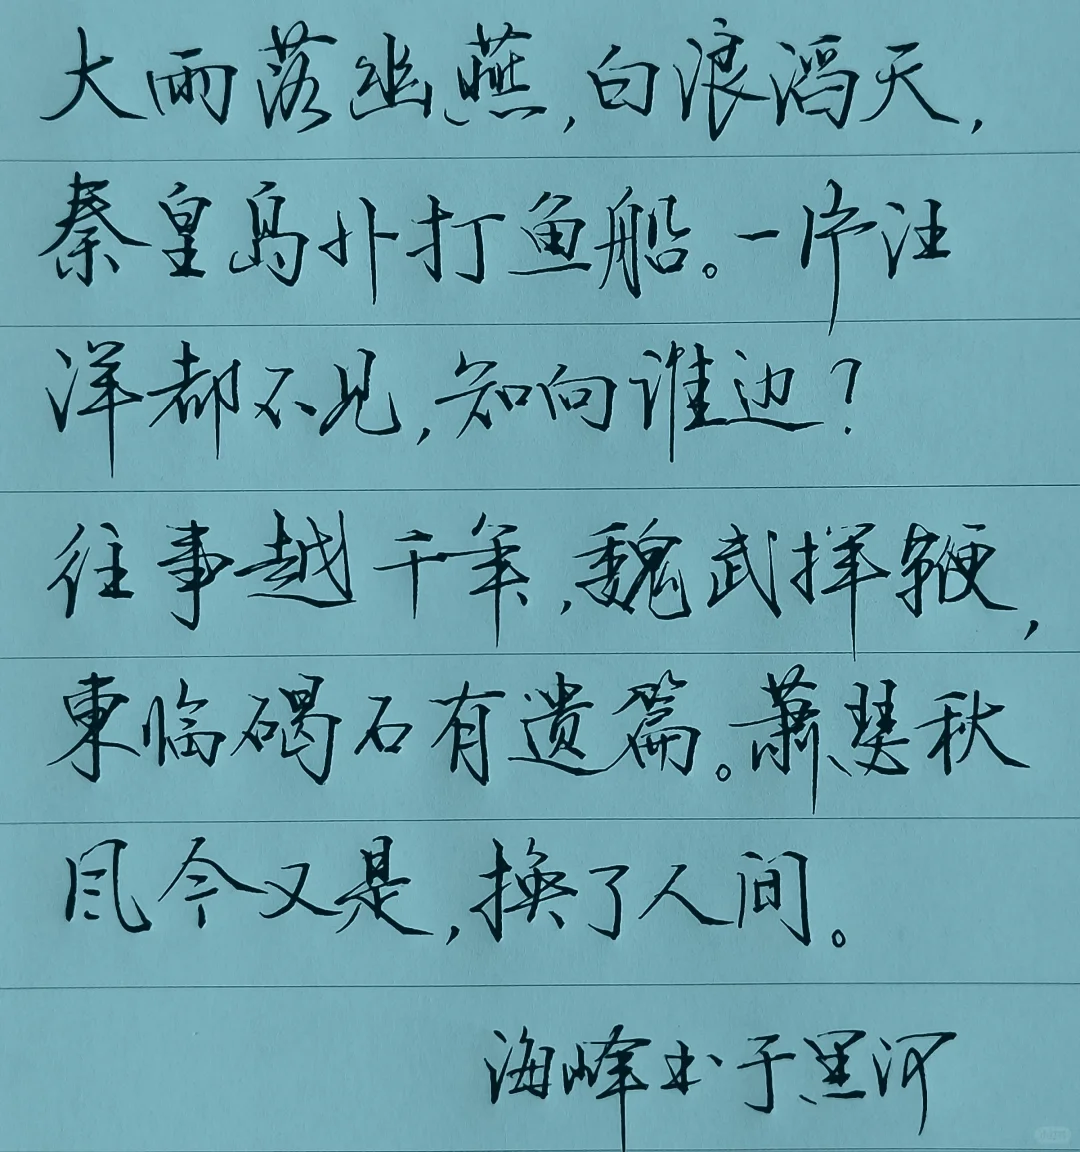 大雨落幽燕,白浪滔天,
秦皇島外打鱼船。一片汪
洋都不见,知向谁边?
往事越千年,魏武揮鞭,
東临碣石有遗篇。萧瑟秋
风今又是,换了人间。
海峰书于黑河